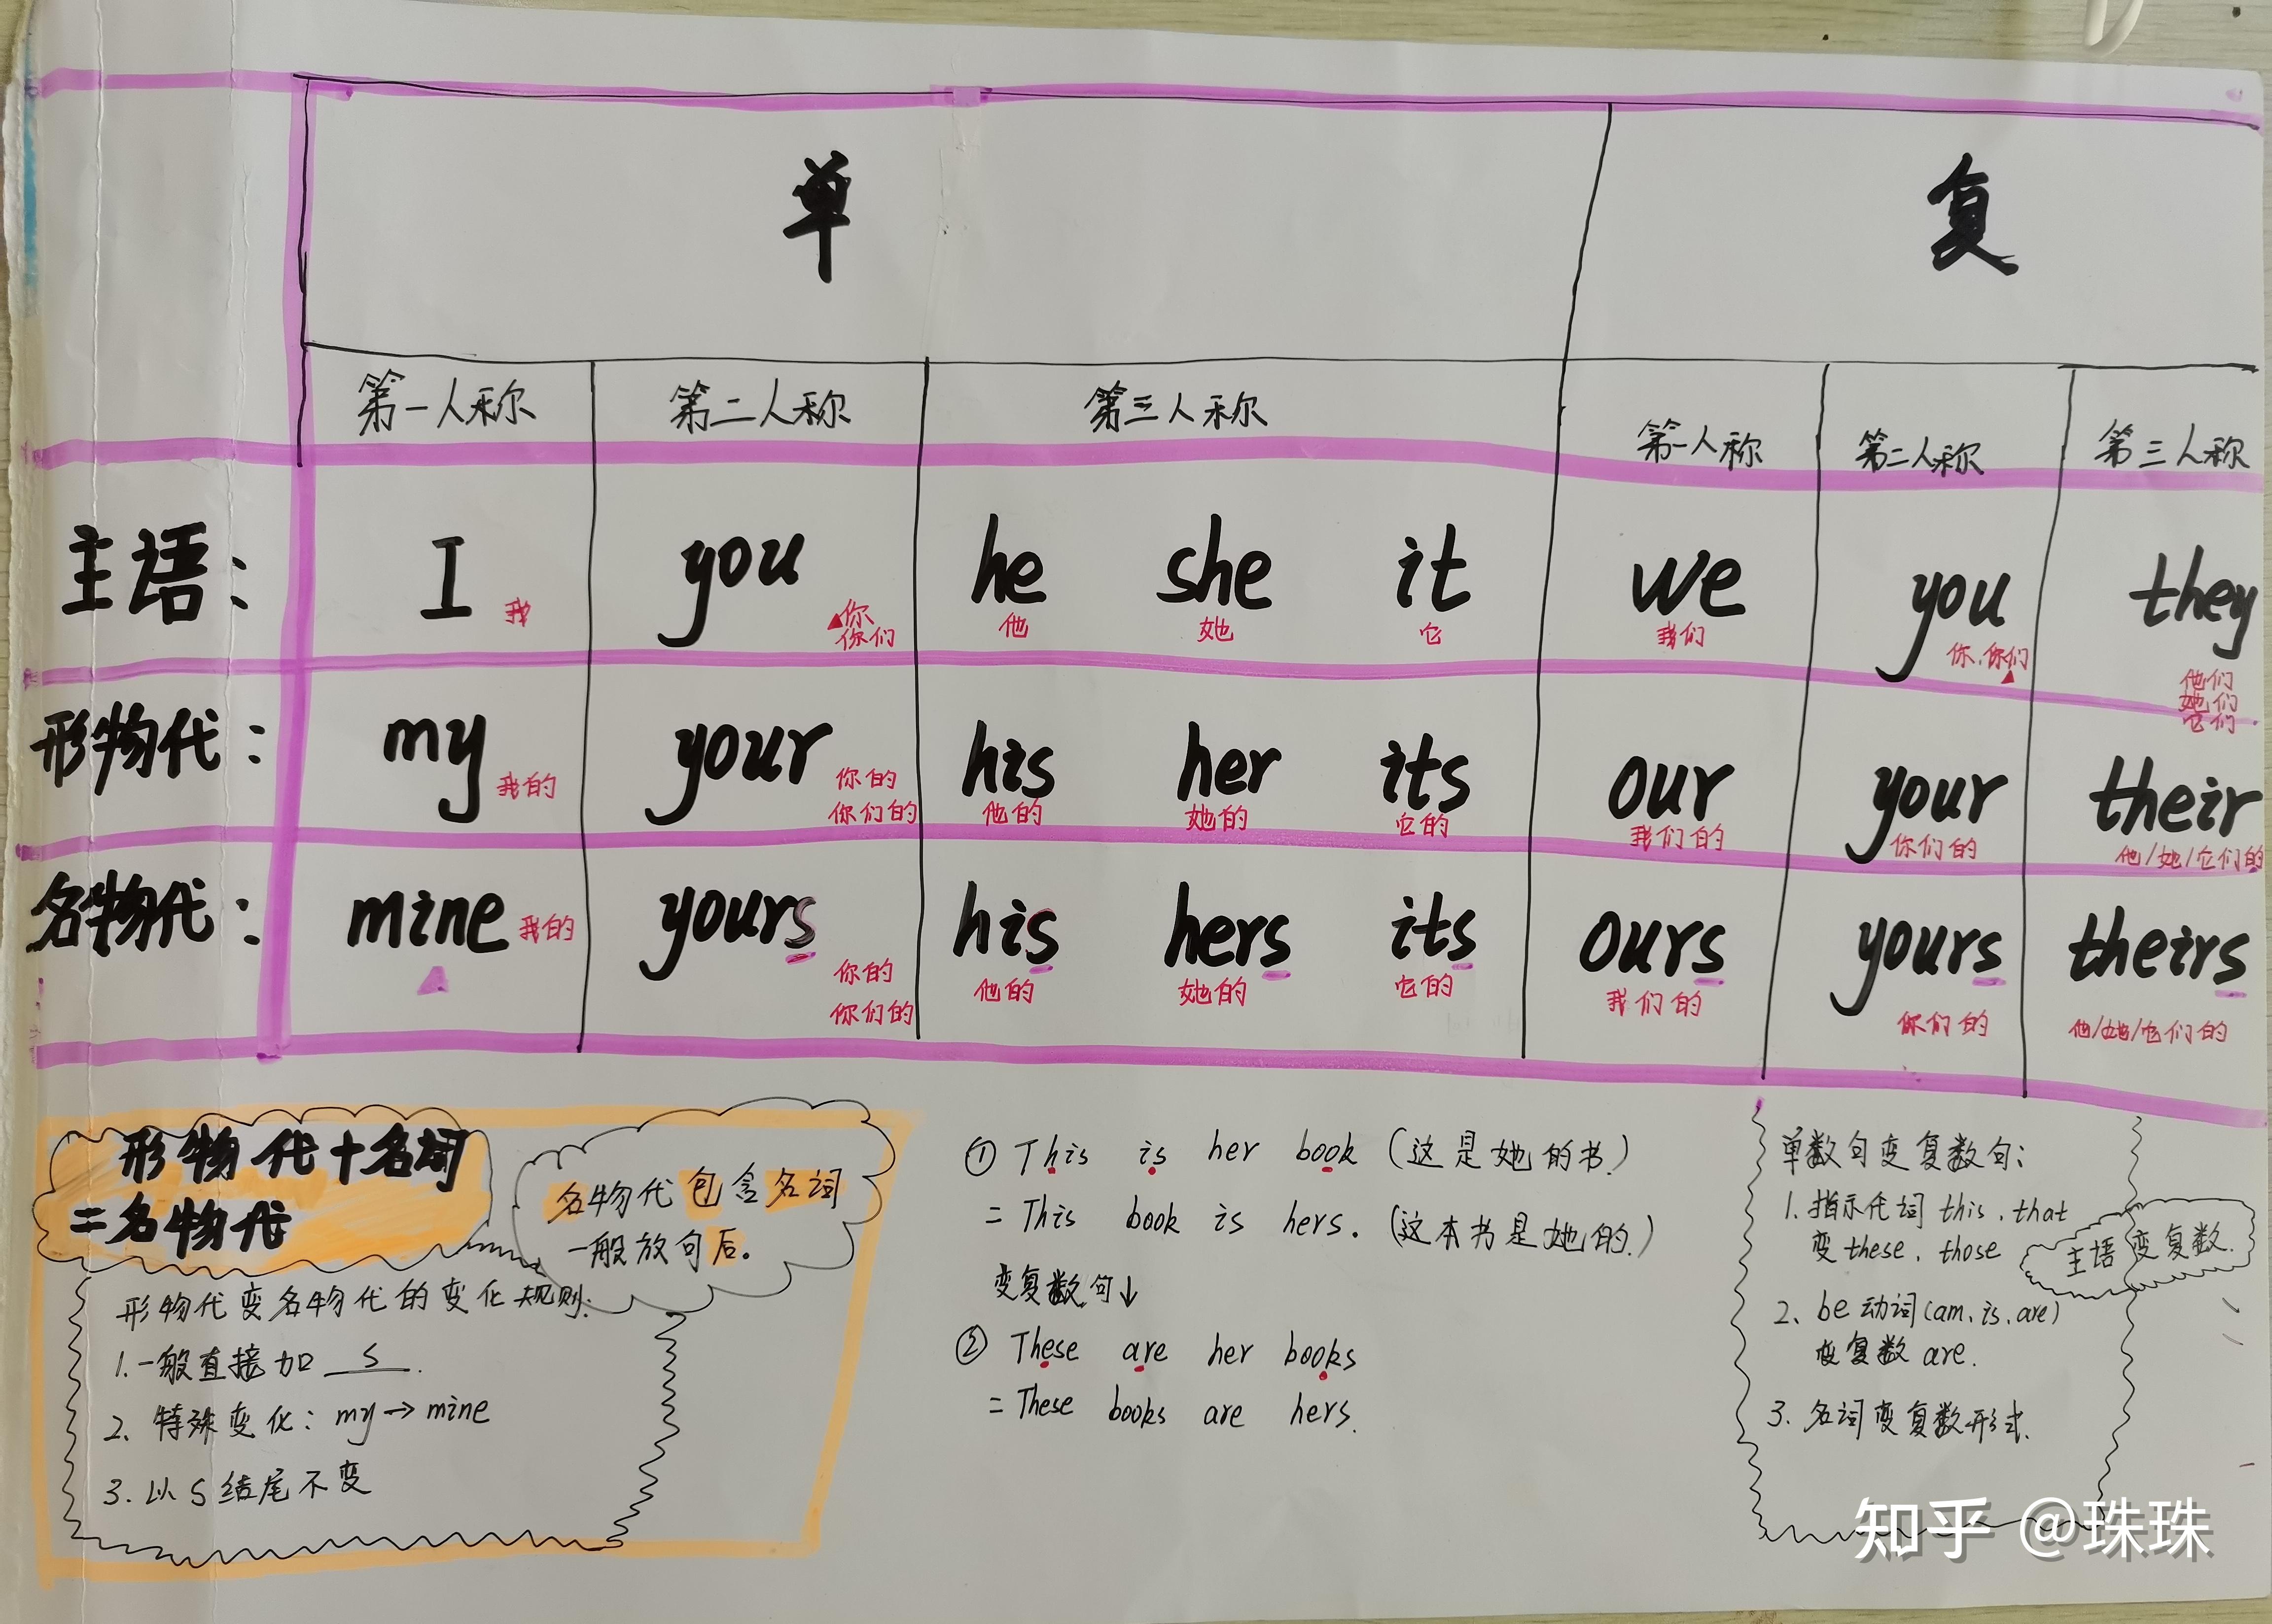 单 复
第一人称 第二人称 第三人称 第一人称 第二人称 第三人称
主语： I you he she it we you they
我 你 你们 他 她 它 我们 你,你们 他们
她们
它们
形物代： my your his her its our your their
我的 你的 你们的 他的 她的 它的 我们的 你们的 他/她/它们的
名物代： mine yours his hers its ours yours theirs
我的 你的 你们的 他的 她的 它的 我们的 你们的 他/她/它们的
形物代+名词
=名物代
名物代包含名词
一般放句后。
形物代变名物代的变化规则:
1.一般直接加 s .
2、特殊变化: my→mine
3.以s结尾不变
① This is her book (这是她的书.)
= This book is hers. (这本书是她的.)
变复数句↓
② These are her books
= These books are hers.
单数句变复数句:
1.指示代词 this, that
变these, those
主语变复数.
2、be动词(am, is, are)
变复数 are.
3.名词变复数形式.
知乎 @珠珠